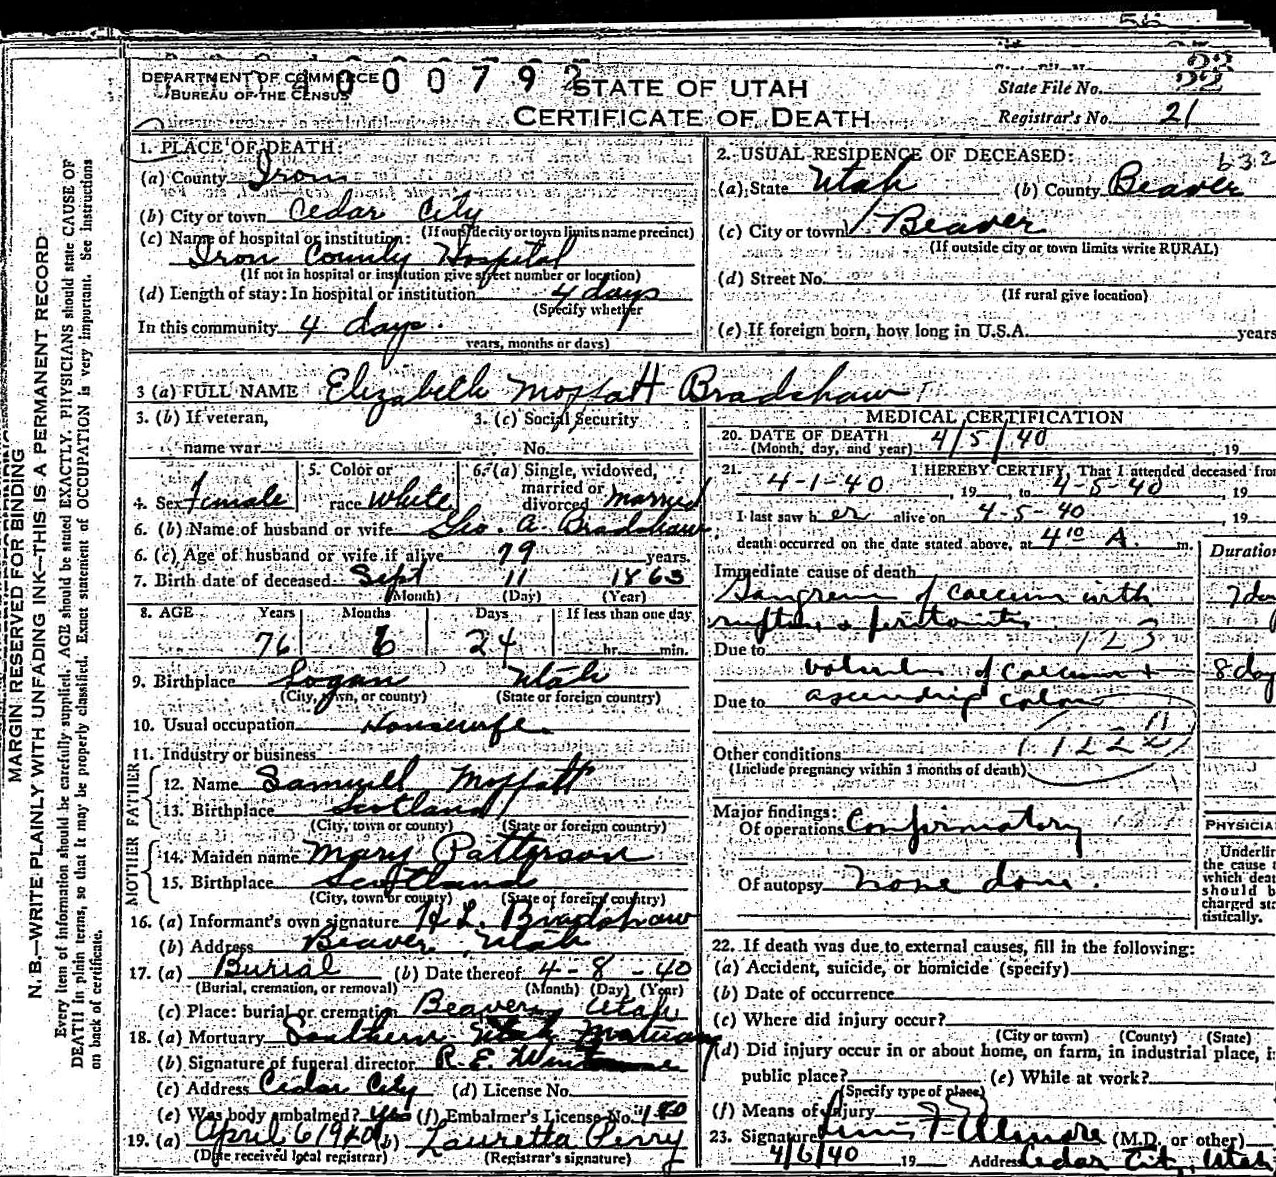 56
DEPARTMENT OF COMMERCE
BUREAU OF THE CENSUS
4 0 0 0 0 7 9 2
STATE OF UTAH
CERTIFICATE OF DEATH
State File No. 22
Registrar's No. 21
MARGIN RESERVED FOR BINDING
N. B.—WRITE PLAINLY WITH UNFADING INK—THIS IS A PERMANENT RECORD
Every item of information should be carefully supplied. AGE should be stated EXACTLY. PHYSICIANS should state CAUSE OF
DEATH in plain terms, so that it may be properly classified. Exact statement of OCCUPATION is very important. See instructions
on back of certificate.
1. PLACE OF DEATH:
(a) County Iron
(b) City or town Cedar City
(If outside city or town limits name precinct)
(c) Name of hospital or institution:
Iron County Hospital
(If not in hospital or institution give street number or location)
(d) Length of stay: In hospital or institution 4 days
(Specify whether
In this community 4 days.
years, months or days)
2. USUAL RESIDENCE OF DECEASED: 632
(a) State Utah (b) County Beaver
(c) City or town Beaver
(If outside city or town limits write RURAL)
(d) Street No.
(If rural give location)
(e) If foreign born, how long in U.S.A. years
3 (a) FULL NAME Elizabeth Moffatt Bradshaw
3. (b) If veteran, 3. (c) Social Security
name war No.
4. Sex Female 5. Color or race White 6. (a) Single, widowed, married or divorced married
6. (b) Name of husband or wife Geo. A. Bradshaw
6. (c) Age of husband or wife if alive 79 years.
7. Birth date of deceased Sept 11 1863
(Month) (Day) (Year)
8. AGE Years Months Days If less than one day
76 6 24 hr. min.
9. Birthplace Logan Utah
(City, town, or county) (State or foreign country)
10. Usual occupation Housewife
11. Industry or business
FATHER
12. Name Samuel Moffatt
13. Birthplace Scotland
(City, town or county) (State or foreign country)
MOTHER
14. Maiden name Mary Patterson
15. Birthplace Scotland
(City, town or county) (State or foreign country)
16. (a) Informant's own signature H.L. Bradshaw
(b) Address Beaver, Utah
17. (a) Burial (b) Date thereof 4-8-40
(Burial, cremation, or removal) (Month) (Day) (Year)
(c) Place: burial or cremation Beaver, Utah
18. (a) Mortuary Southern Utah Mortuary
(b) Signature of funeral director R. E.
(c) Address Cedar City (d) License No.
(e) Was body embalmed? yes (f) Embalmer's License No. 180
19. (a) April 6 1940 (b) Lauretta Perry
(Date received local registrar) (Registrar's signature)
MEDICAL CERTIFICATION
20. DATE OF DEATH 4/5/40
(Month, day, and year) , 19
21. I HEREBY CERTIFY, That I attended deceased from
4-1-40 , 19 , to 4-5-40 , 19
I last saw h er alive on 4-5-40 , 19
death occurred on the date stated above, at 4 10 A. m.
Duration
Immediate cause of death
Gangrene of caecum with 7 day
rupture & peritonitis 123
Due to
volvulus of caecum + 8 day
Due to ascending colon
11
Other conditions 1222
(Include pregnancy within 3 months of death)
Major findings:
Of operations Confirmatory
Of autopsy none done.
PHYSICIA
Underlin
the cause
which deat
should b
charged sta
tistically.
22. If death was due to external causes, fill in the following:
(a) Accident, suicide, or homicide (specify)
(b) Date of occurrence
(c) Where did injury occur?
(City or town) (County) (State)
(d) Did injury occur in or about home, on farm, in industrial place, i
public place? (e) While at work?
(Specify type of place)
(f) Means of Injury
23. Signature (M.D. or other)
4/6/40 19 Address Cedar City, Utah